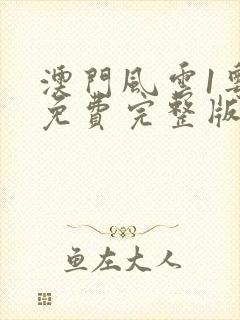 澳門風雲1
免費完整版
鱼左大人